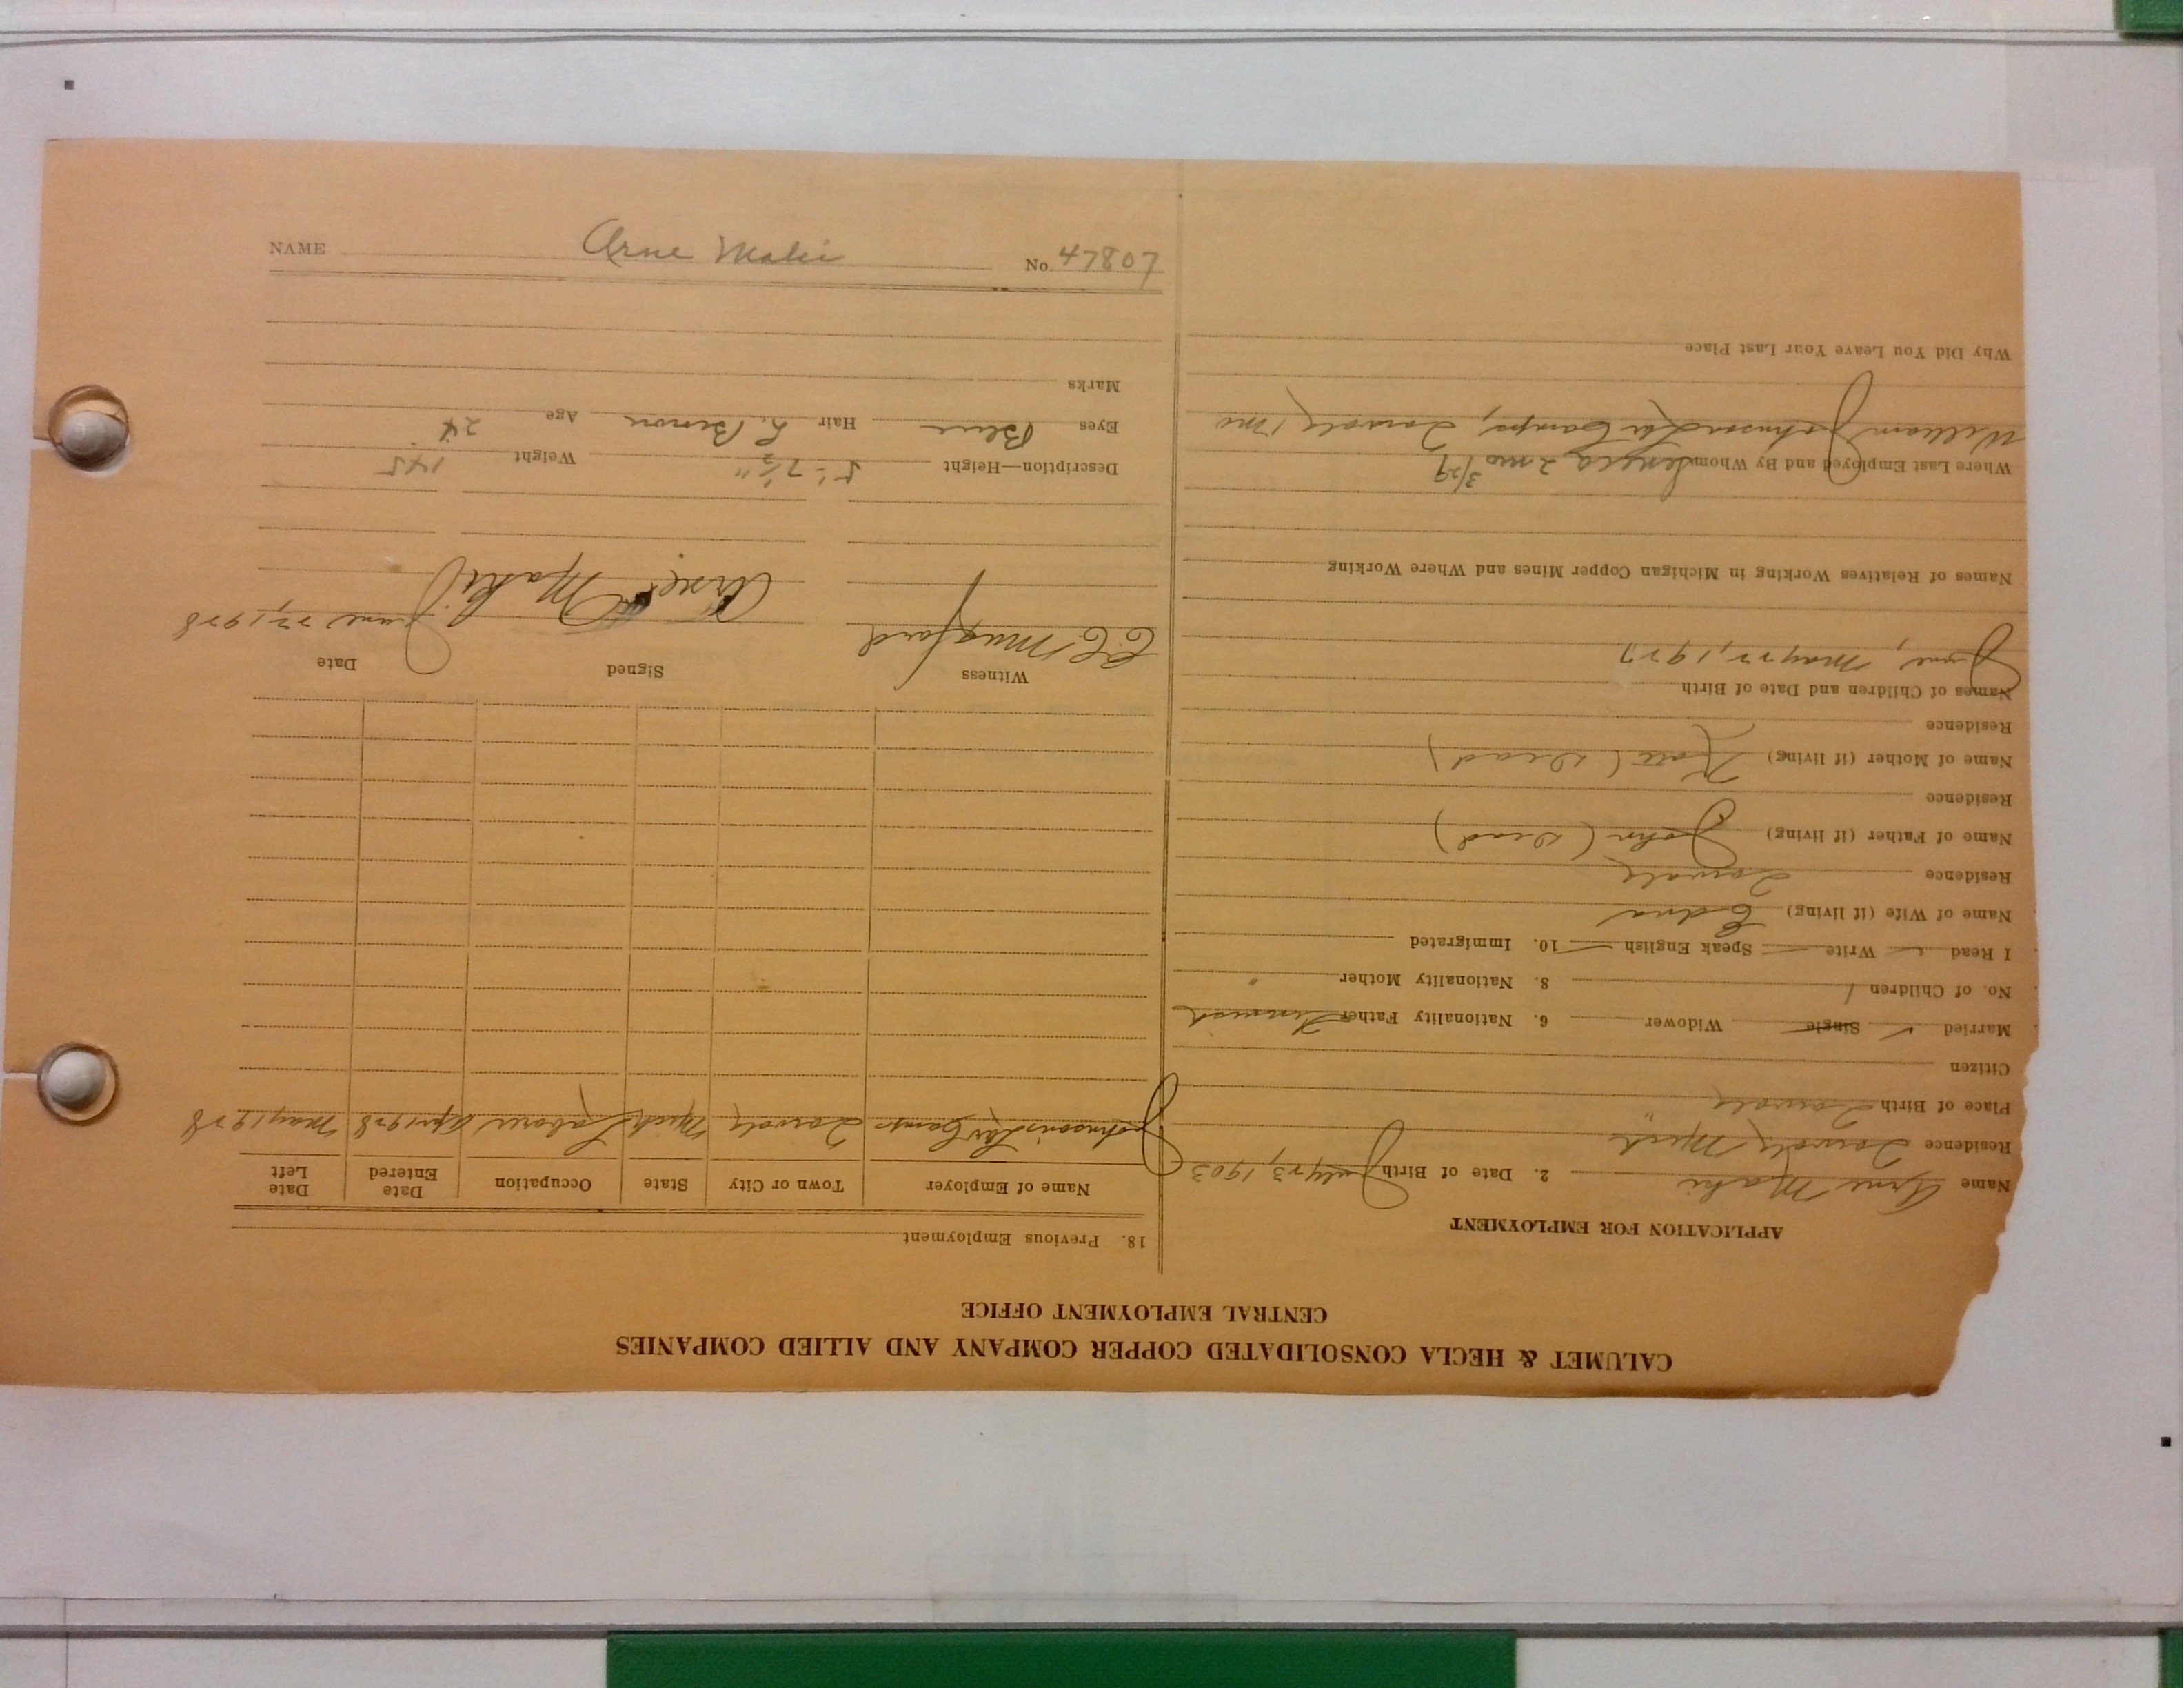 NAME Arne Maki No. 47807
CALUMET & HECLA CONSOLIDATED COPPER COMPANY AND ALLIED COMPANIES
CENTRAL EMPLOYMENT OFFICE
APPLICATION FOR EMPLOYMENT
Name Arne Maki 2. Date of Birth July 23, 1903
Residence Mich
Place of Birth
Citizen
Married ✓ Single Widower 6. Nationality Father Finnish
No. of Children 1 8. Nationality Mother "
I Read Write Speak English 10. Immigrated
Name of Wife (if living) Edna
Residence
Name of Father (if living) John (Dead)
Residence
Name of Mother (if living) Kate (Dead)
Residence
Names of Children and Date of Birth
June, May 22, 1927
Names of Relatives Working in Michigan Copper Mines and Where Working
Where Last Employed and By Whom Seneca 2 mo 3/29
William Johnson Camps, 1 mo
Why Did You Leave Your Last Place
18. Previous Employment
Name of Employer Town or City State Occupation Date Entered Date Left
Johnson's Camp Mich Laborer Apr 1928 May 1928
Witness Signed Date
C.C. Mugford Arne Maki June 22, 1928
Description—Height 5' 7 1/2" Weight 145
Eyes Blue Hair L. Brown Age 24
Marks